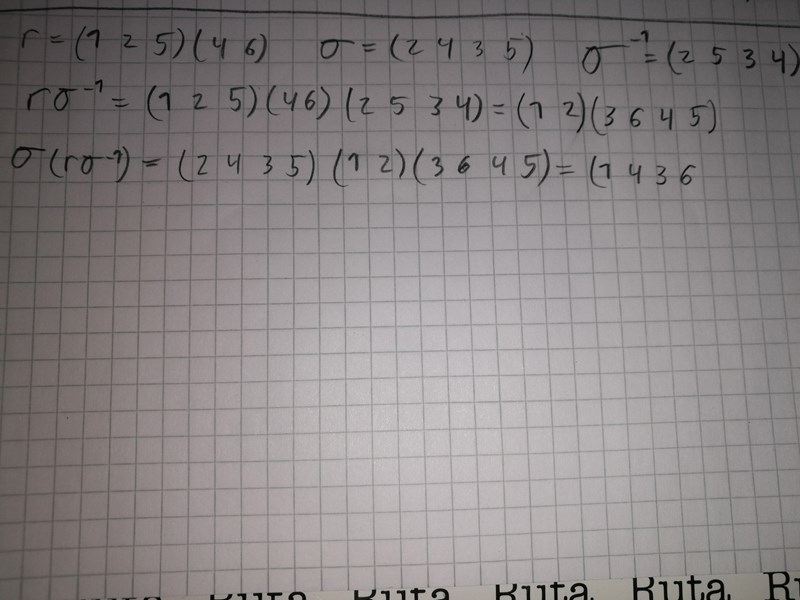 r = (1 2 5)(4 6) σ = (2 4 3 5) σ⁻¹ = (2 5 3 4)
rσ⁻¹ = (1 2 5)(46)(2 5 3 4) = (1 2)(3 6 4 5)
σ(rσ⁻¹) = (2 4 3 5)(1 2)(3 6 4 5) = (1 4 3 6
Ruta Ruta Ruta Ruta